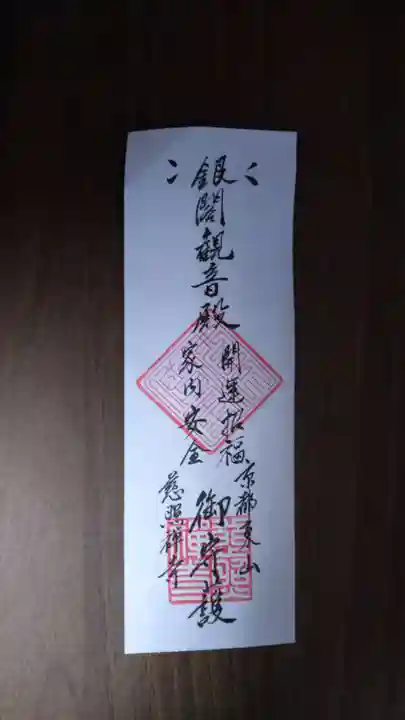 銀閣觀音殿
開運招福
家内安全
御守護
京都東山
慈照禅寺